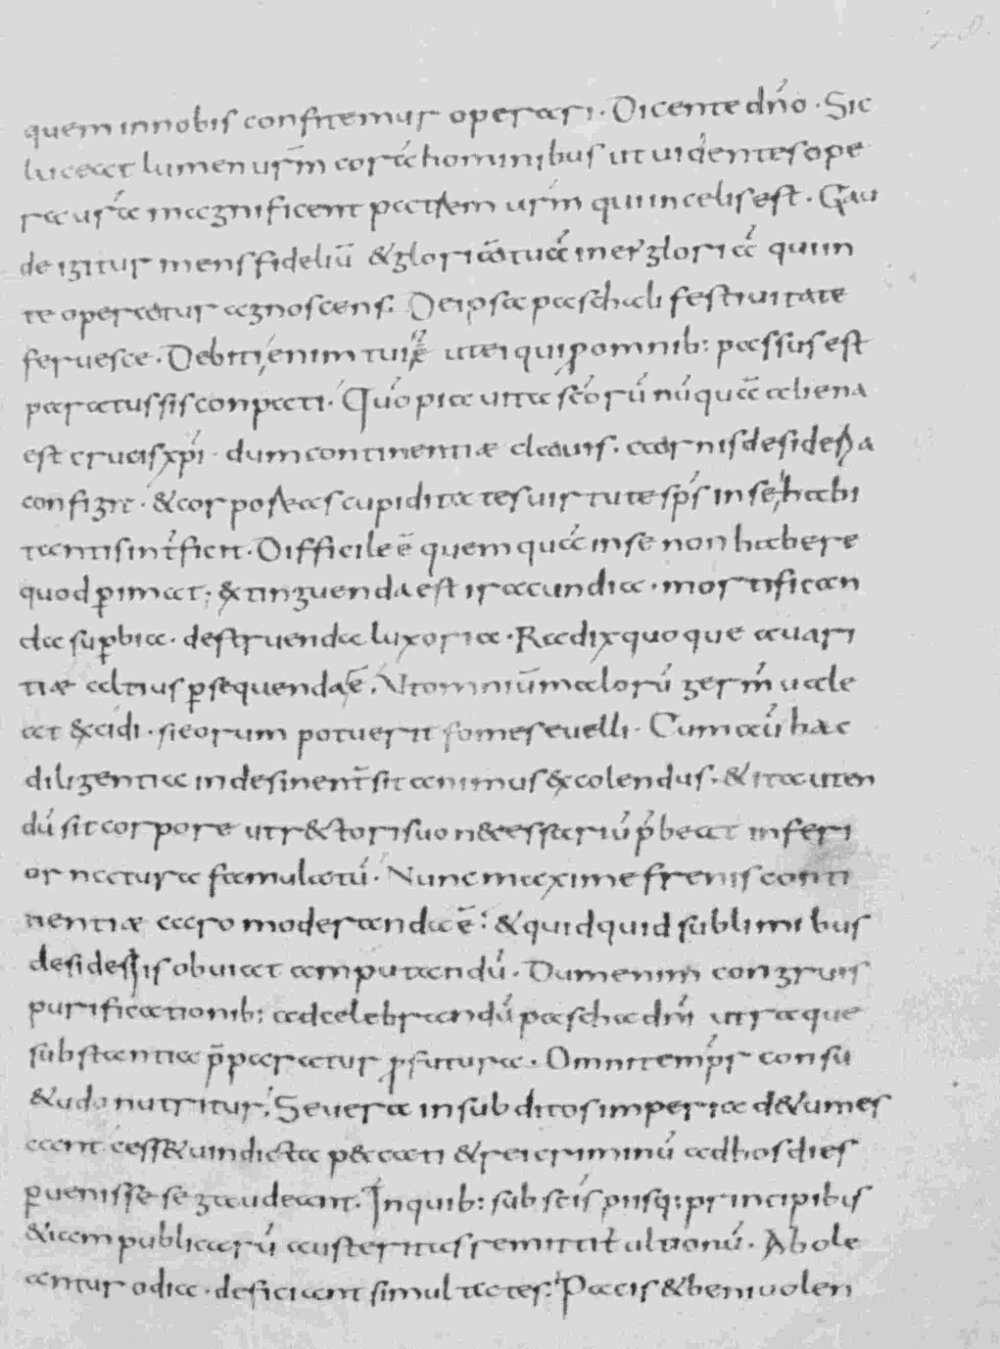 quem innobis confitemur operari. Dicente dn̄o. Sic
luceat lumen urm̄ corā hominibus ut uidentes ope
ra urā magnificent patrem urm̄ qui incelis est. Gau
de igitur mens fideliū & gloriātuā inei' gloriā quiin
te operatur agnoscens. De ipsa paschali festiuitate
feruesce. Debiti enim tui ē utei qui p omnib: passus est
paratus sis conpati. Quō pia uita scōrū nūquā aliena
est cruci xpī. dum continentiæ clauis. carnis desideria
configit. & corporeas cupiditates uirtute sps̄ in se habi
tantis int̄ficit. Difficile ē quemquā inse non habere
quod p̄imat. &tinguenda est iracundia. mortifican
da sup̄bia. destruenda luxoria. Radix quoque auari
tiæ altius p̄sequenda ē. Ut omniū malorū germ̄ uale
at excidi. si eorum potuerit fomes euelli. Cum aū hac
diligentia indesinent̄ sit animus excolendus. & ita uten
dū sit corpore utr&tori suo n&essariū p̄beat inferi
or natura famulatū. Nunc maxime frenis conti
nentiæ caro moderanda ē. & quidquid sublimibus
desideriis obuiat amputandū. Dum enim congruis
purificationib: adcelebrandū pascha dnī utraque
substantia p̄paratur pfutura. Omni tempr̄ consu
&udo nutritur. Seuera in subditos imperia d&umes
cant cess& uindicta p&cati & rei criminū adhos dies
p̄uenisse se gaudeant. Inquib: sub scīs piisq: principibus
&iam publicarū austeritas remittit̄ ultionū. Abole
antur odia. deficiant simultates. Pacis & beniuolen